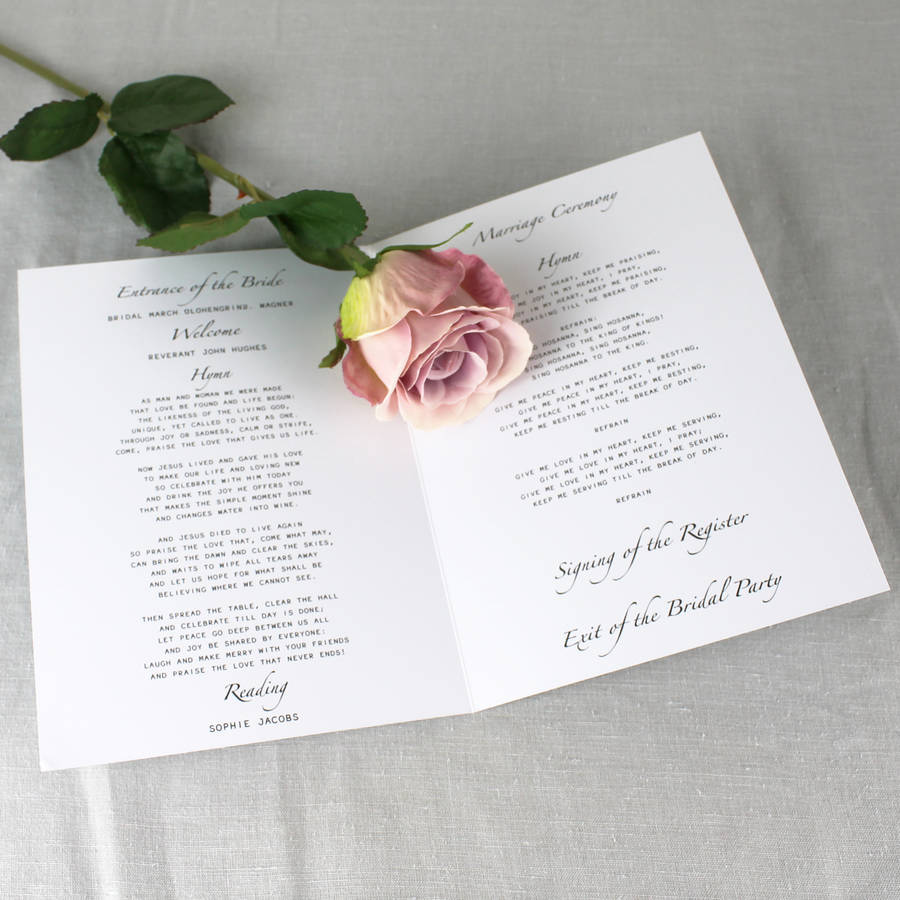 Entrance of the Bride
BRIDAL MARCH OLOHENGRIN). WAGNER
Welcome
REVERANT JOHN HUGHES
Hymn
AS MAN AND WOMAN WE WERE MADE
THAT LOVE BE FOUND AND LIFE BEGUN:
THE LIKENESS OF THE LIVING GOD,
UNIQUE, YET CALLED TO LIVE AS ONE.
THROUGH JOY OR SADNESS, CALM OR STRIFE,
COME, PRAISE THE LOVE THAT GIVES US LIFE.
NOW JESUS LIVED AND GAVE HIS LOVE
TO MAKE OUR LIFE AND LOVING NEW
SO CELEBRATE WITH HIM TODAY
AND DRINK THE JOY HE OFFERS YOU
THAT MAKES THE SIMPLE MOMENT SHINE
AND CHANGES WATER INTO WINE.
AND JESUS DIED TO LIVE AGAIN
SO PRAISE THE LOVE THAT, COME WHAT MAY,
CAN BRING THE DAWN AND CLEAR THE SKIES,
AND WAITS TO WIPE ALL TEARS AWAY
AND LET US HOPE FOR WHAT SHALL BE
BELIEVING WHERE WE CANNOT SEE.
THEN SPREAD THE TABLE, CLEAR THE HALL
AND CELEBRATE TILL DAY IS DONE;
LET PEACE GO DEEP BETWEEN US ALL
AND JOY BE SHARED BY EVERYONE:
LAUGH AND MAKE MERRY WITH YOUR FRIENDS
AND PRAISE THE LOVE THAT NEVER ENDS!
Reading
SOPHIE JACOBS
Marriage Ceremony
Hymn
IN MY HEART, KEEP ME PRAISING,
ME JOY IN MY HEART, I PRAY,
IN MY HEART, KEEP ME PRAISING
PRAISING TILL THE BREAK OF DAY.
REFRAIN:
SING HOSANNA, SING HOSANNA,
SING HOSANNA TO THE KING OF KINGS!
SING HOSANNA, SING HOSANNA,
SING HOSANNA TO THE KING.
GIVE ME PEACE IN MY HEART, KEEP ME RESTING,
GIVE ME PEACE IN MY HEART, I PRAY,
GIVE ME PEACE IN MY HEART, KEEP ME RESTING,
KEEP ME RESTING TILL THE BREAK OF DAY.
REFRAIN
GIVE ME LOVE IN MY HEART, KEEP ME SERVING,
GIVE ME LOVE IN MY HEART, I PRAY;
GIVE ME LOVE IN MY HEART, KEEP ME SERVING,
KEEP ME SERVING TILL THE BREAK OF DAY.
REFRAIN
Signing of the Register
Exit of the Bridal Party